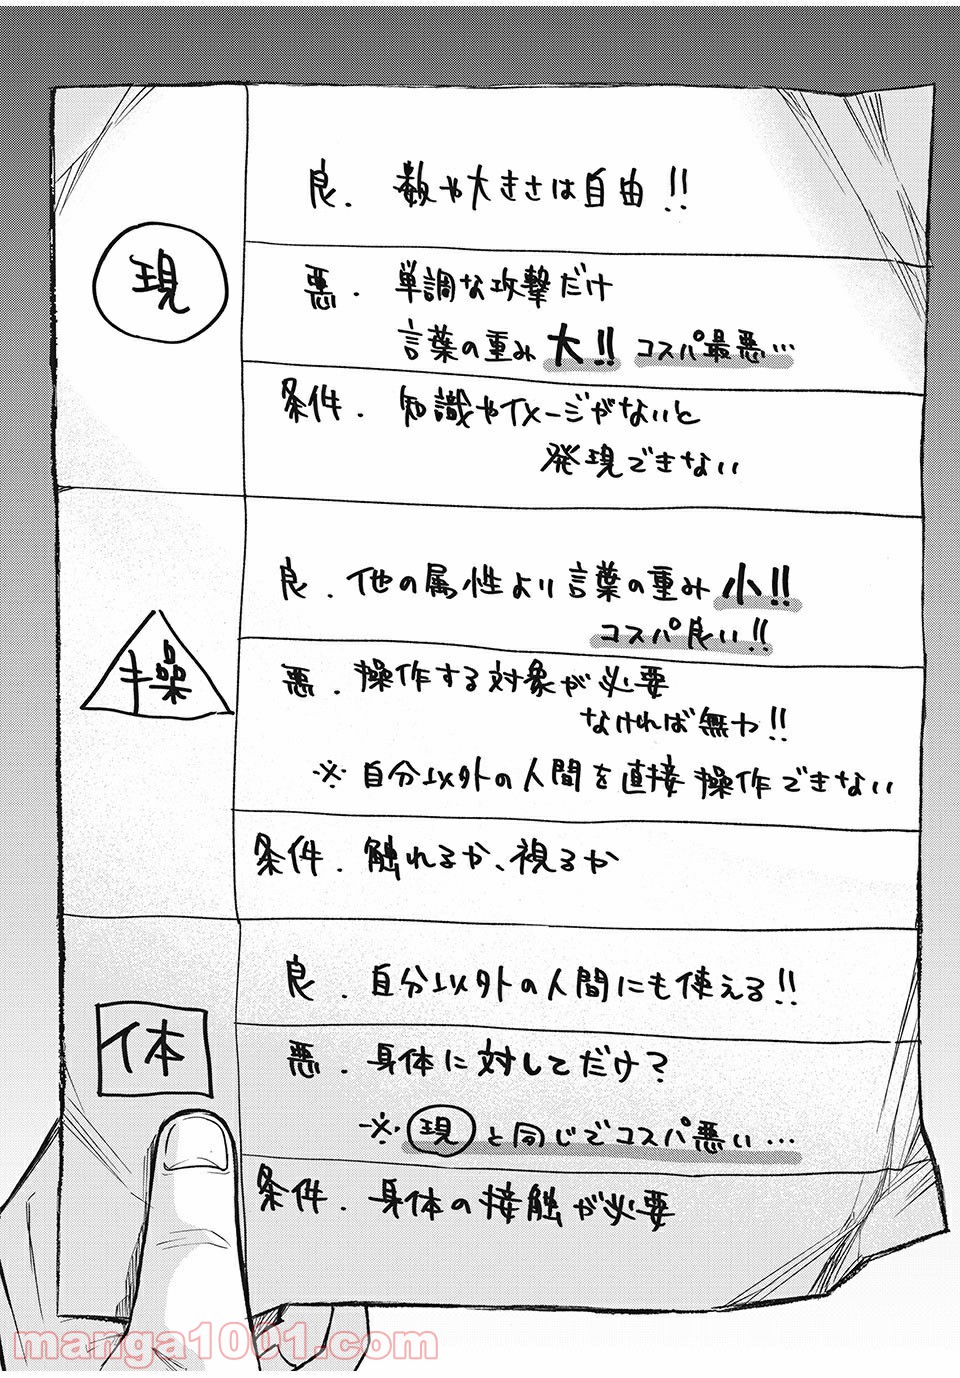 現
良. 数や大きさは自由!!
悪. 単調な攻撃だけ
言葉の重み大!! コスパ最悪…
条件. 知識やイメージがないと
発現できない
操
良. 他の属性より言葉の重み小!!
コスパ良い!!
悪. 操作する対象が必要
なければ無力!!
※自分以外の人間を直接操作できない
条件. 触れるか、視るか
体
良. 自分以外の人間にも使える!!
悪. 身体に対してだけ?
※現と同じでコスパ悪い…
条件. 身体の接触が必要
manga1001.com